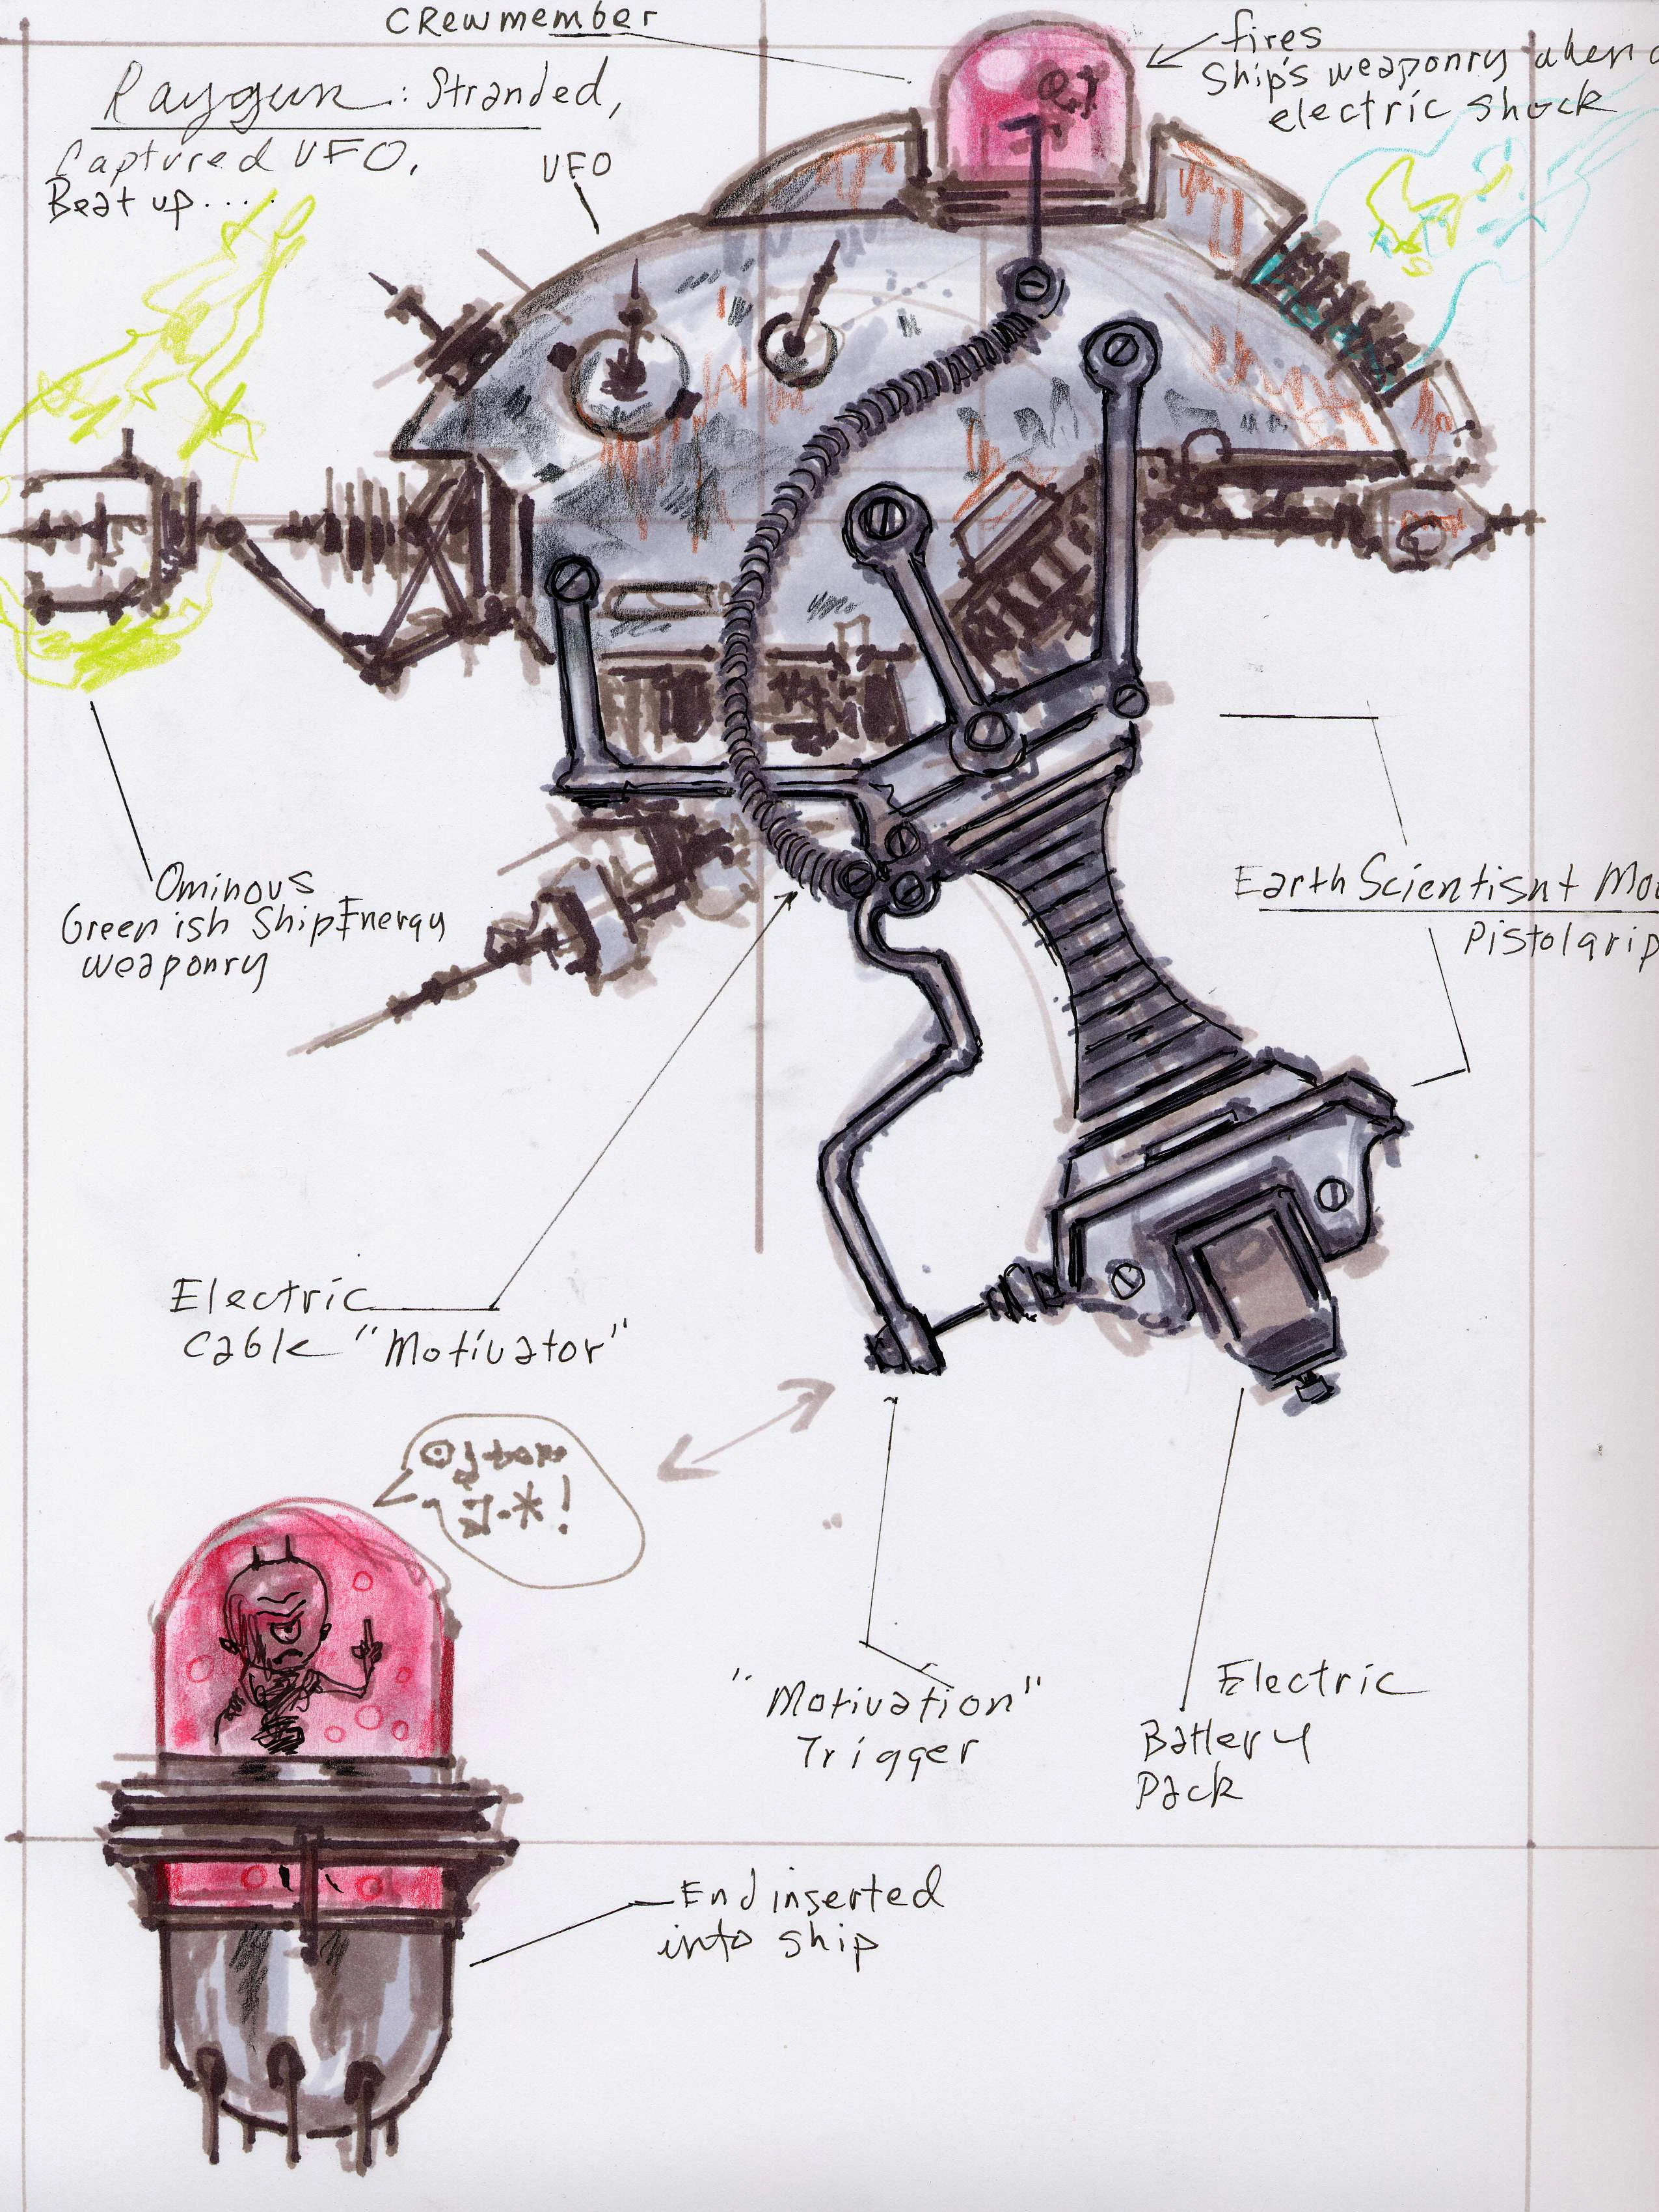 Crewmember
fires
Ship's weaponry when
electric shock
Raygun: Stranded,
Captured UFO,
Beat up....
UFO
Ominous
Greenish Ship Energy
weaponry
Earth Scientisnt
Pistolgrip
Electric
Cable "Motivator"
"Motivation"
Trigger
Electric
Battery
Pack
End inserted
into ship